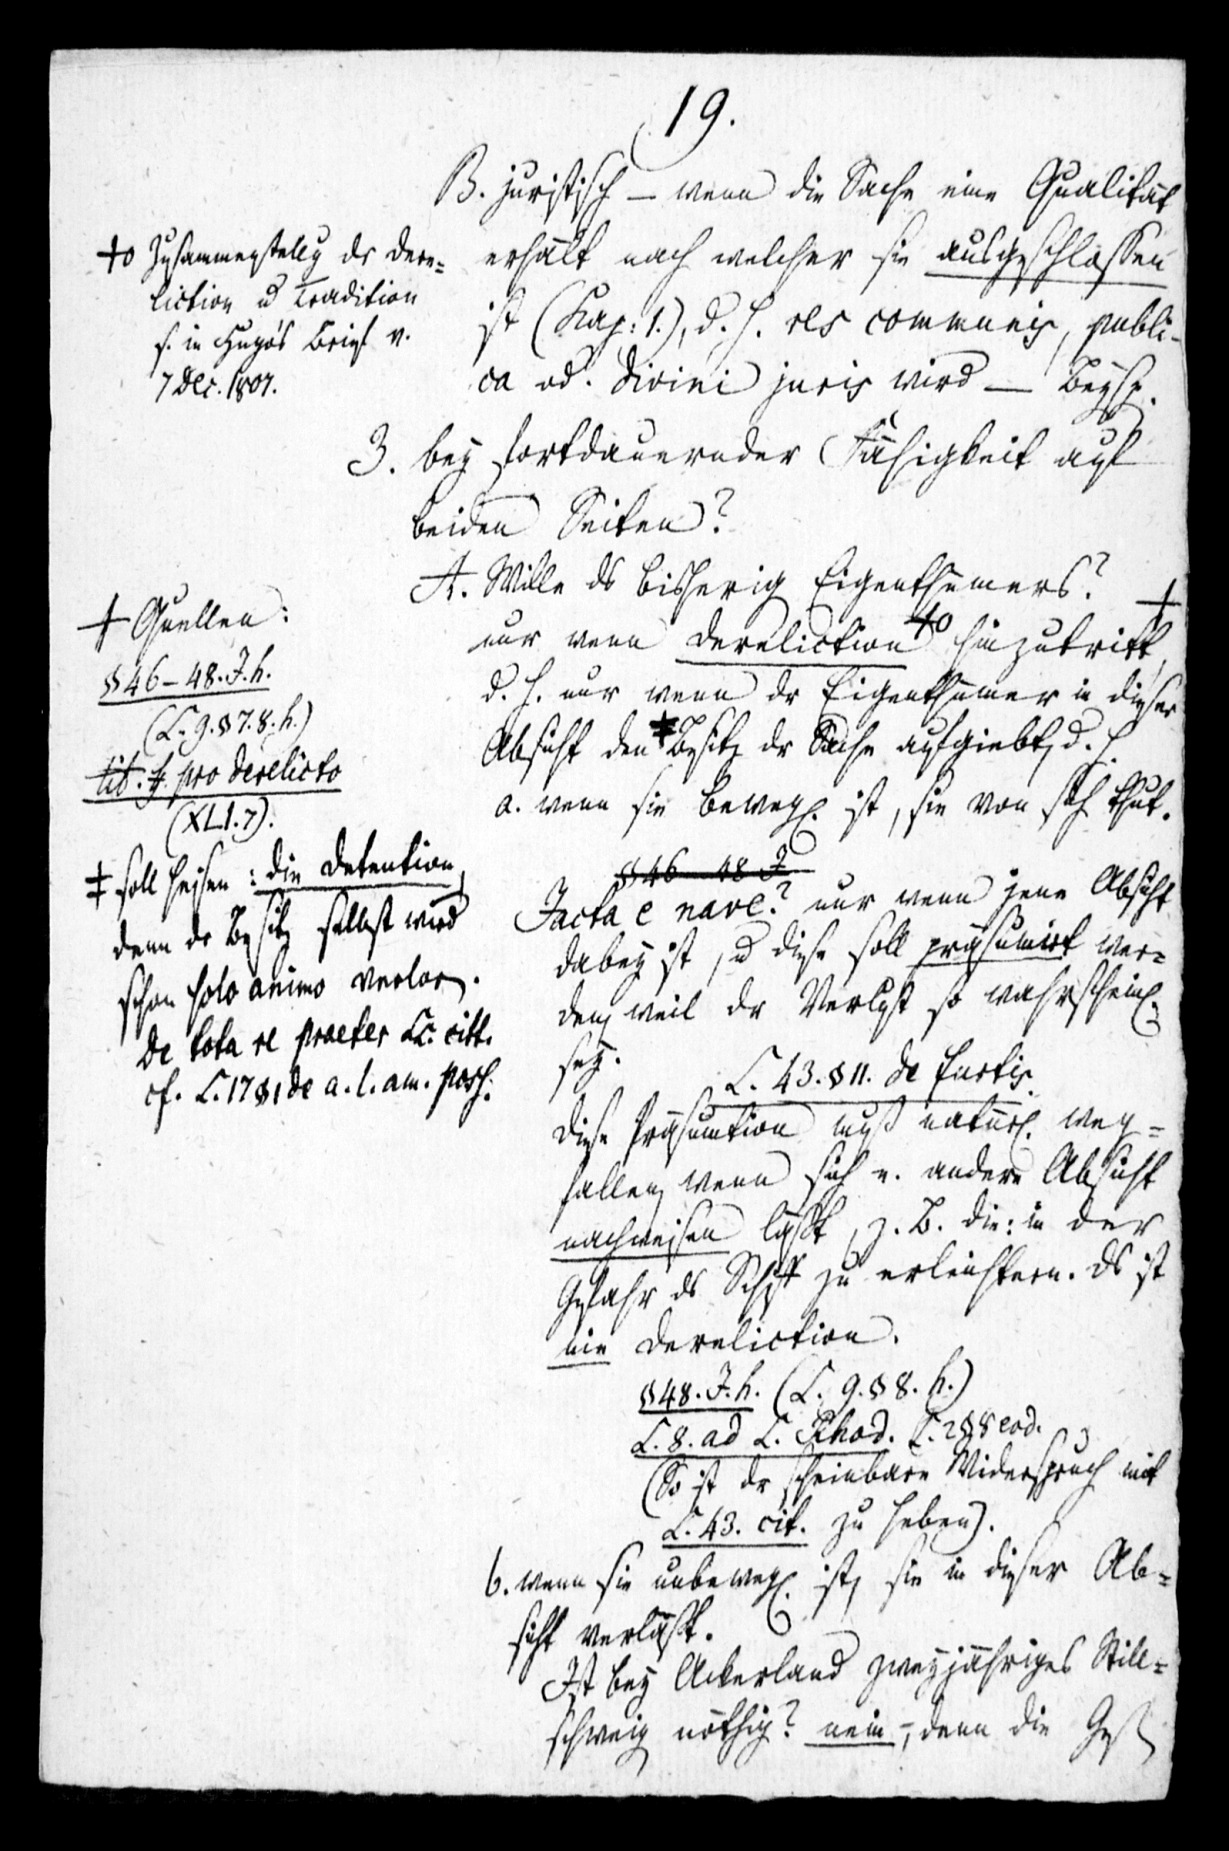 19.
B. juristisch – wenn die Sache eine Qualität
erhält nach welcher sie ausgeschlossen
ist (Kap: 1.), d. h. res communis, publi-
ca od. divini juris wird — Beysp.
3. bey fortdauernder Fähigkeit auf
beiden Seiten?
A. Wille ds bisherig Eigenthümers?
nur wenn Dereliction +o hinzutritt, +
d. h. nur wenn dr Eigenthümer in dieser
Absicht den ‡ Besitz dr Sache aufgiebt, d. h.
a. wenn sie bewegl. ist, sie von sich thut.
§ 46–48 J
Jacta e nave? nur wenn jene Absicht
dabey ist, u diese soll präsumirt wer=
den, weil dr Verlust so wahrscheinl.
sey.
L. 43. § 11. de furtis
Diese Präsumtion muß natürl. weg=
fallen, wenn sich e. andere Absicht
nachweisen läßt, z. B. die: in der
Gefahr ds Schiff zu erleichtern. Ds ist
nie Dereliction.
§ 48. J. h. (L. 9. § 8. h.)
L. 8. ad L. Rhod. L. 2 § 8 eod.
(So ist dr scheinbare Widerspruch mit
L. 43. cit. zu heben).
b. wenn sie unbewegl. ist, sie in dieser Ab=
sicht verläßt.
Ist bey Ackerland zweyjähriges Still=
schweig nöthig? nein –, denn die
+o Zusammenstellg dr Dere=
liction u Tradition
s. in Hugo's Brief v.
7 Dec. 1807.
+ Quellen:
§ 46–48. J. h.
(L. 9. § 7. 8. h.)
tit. ff. pro derelicto
(XLI. 7).
‡ soll heisen: die Detention,
denn dr Besitz selbst wird
schon solo animo verlor.
De tota re praeter LL. citt.
cf. L. 17 § 1 de a. l. am. poss.